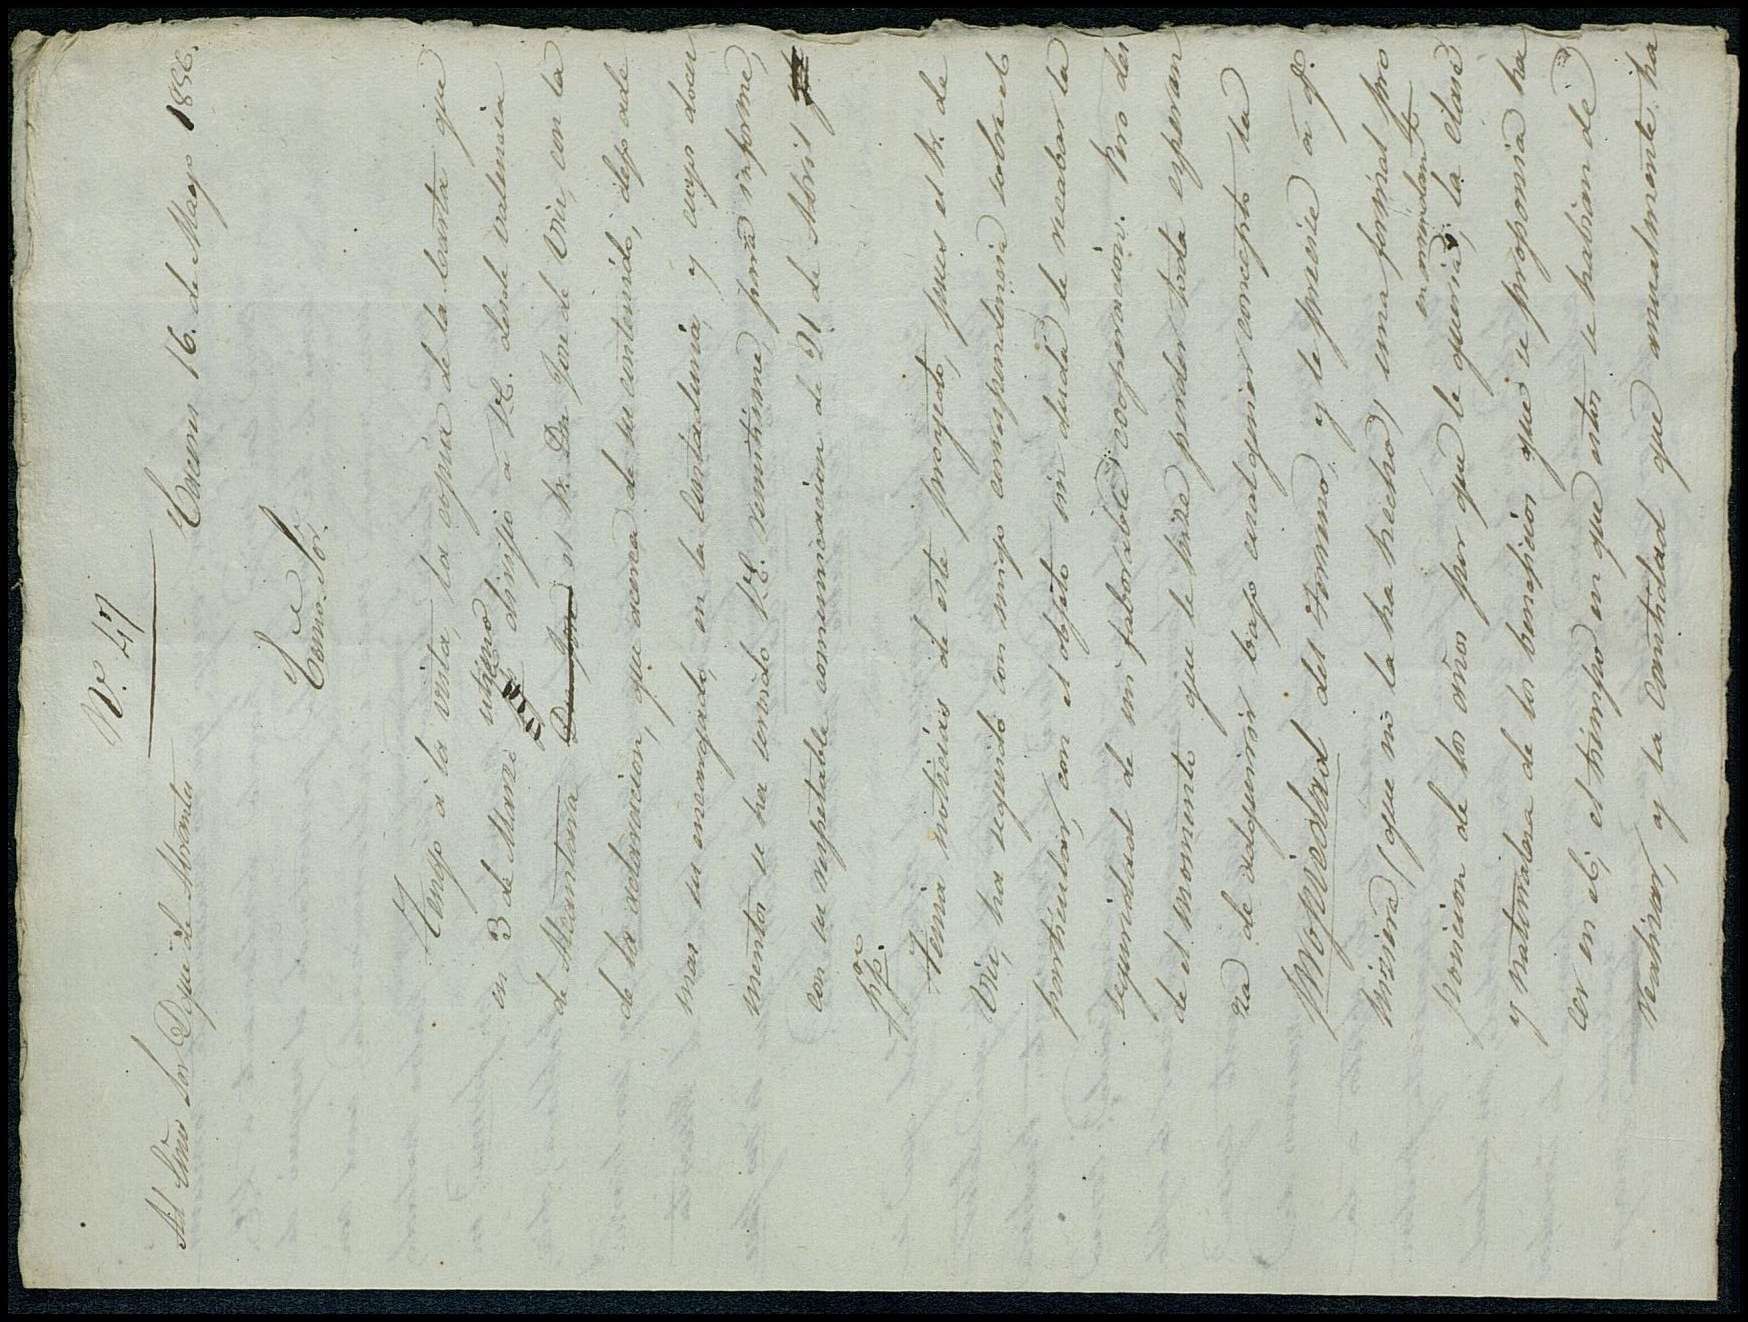 Nº. 47
Al Exmo Sor Duque de Abrantes
Cáceres 16. de Mayo 1856.
Excmo. Sor.
Tengo á la vista, la copia de la Carta que
en 3 de Marzo último dirijió á V.E. desde Valencia
de Alcantara Don José el Sr. Don José de Viu, con la
de la aclaracion, que acerca de su contenido, dejó ade
mas su encargado, en la Contaduria, y cuyos docu
mentos se ha servido V.E. remitirme, para informe,
con su respetable comunicacion de 21 de Abril
ppdo.
Tenia noticias de este proyecto, pues el Sr. de
Viu, ha seguido con migo correspondencia sobre el
particular, con el objeto sin duda de recabar la
seguridad de mi faborable cooperacion. Pero des
de el momento que le hice perder toda esperan
za de adquirir bajo cualquier concepto la
propiedad del terreno, y le previne á q.
hiciera (que no la ha hecho) una formal pro
posicion de los años por que le queria en arrendamto, la clase
y naturaleza de los beneficios que se proponia ha
cer en él, el tiempo en que estos se habian de
realizar, y la cantidad que anualmente ha